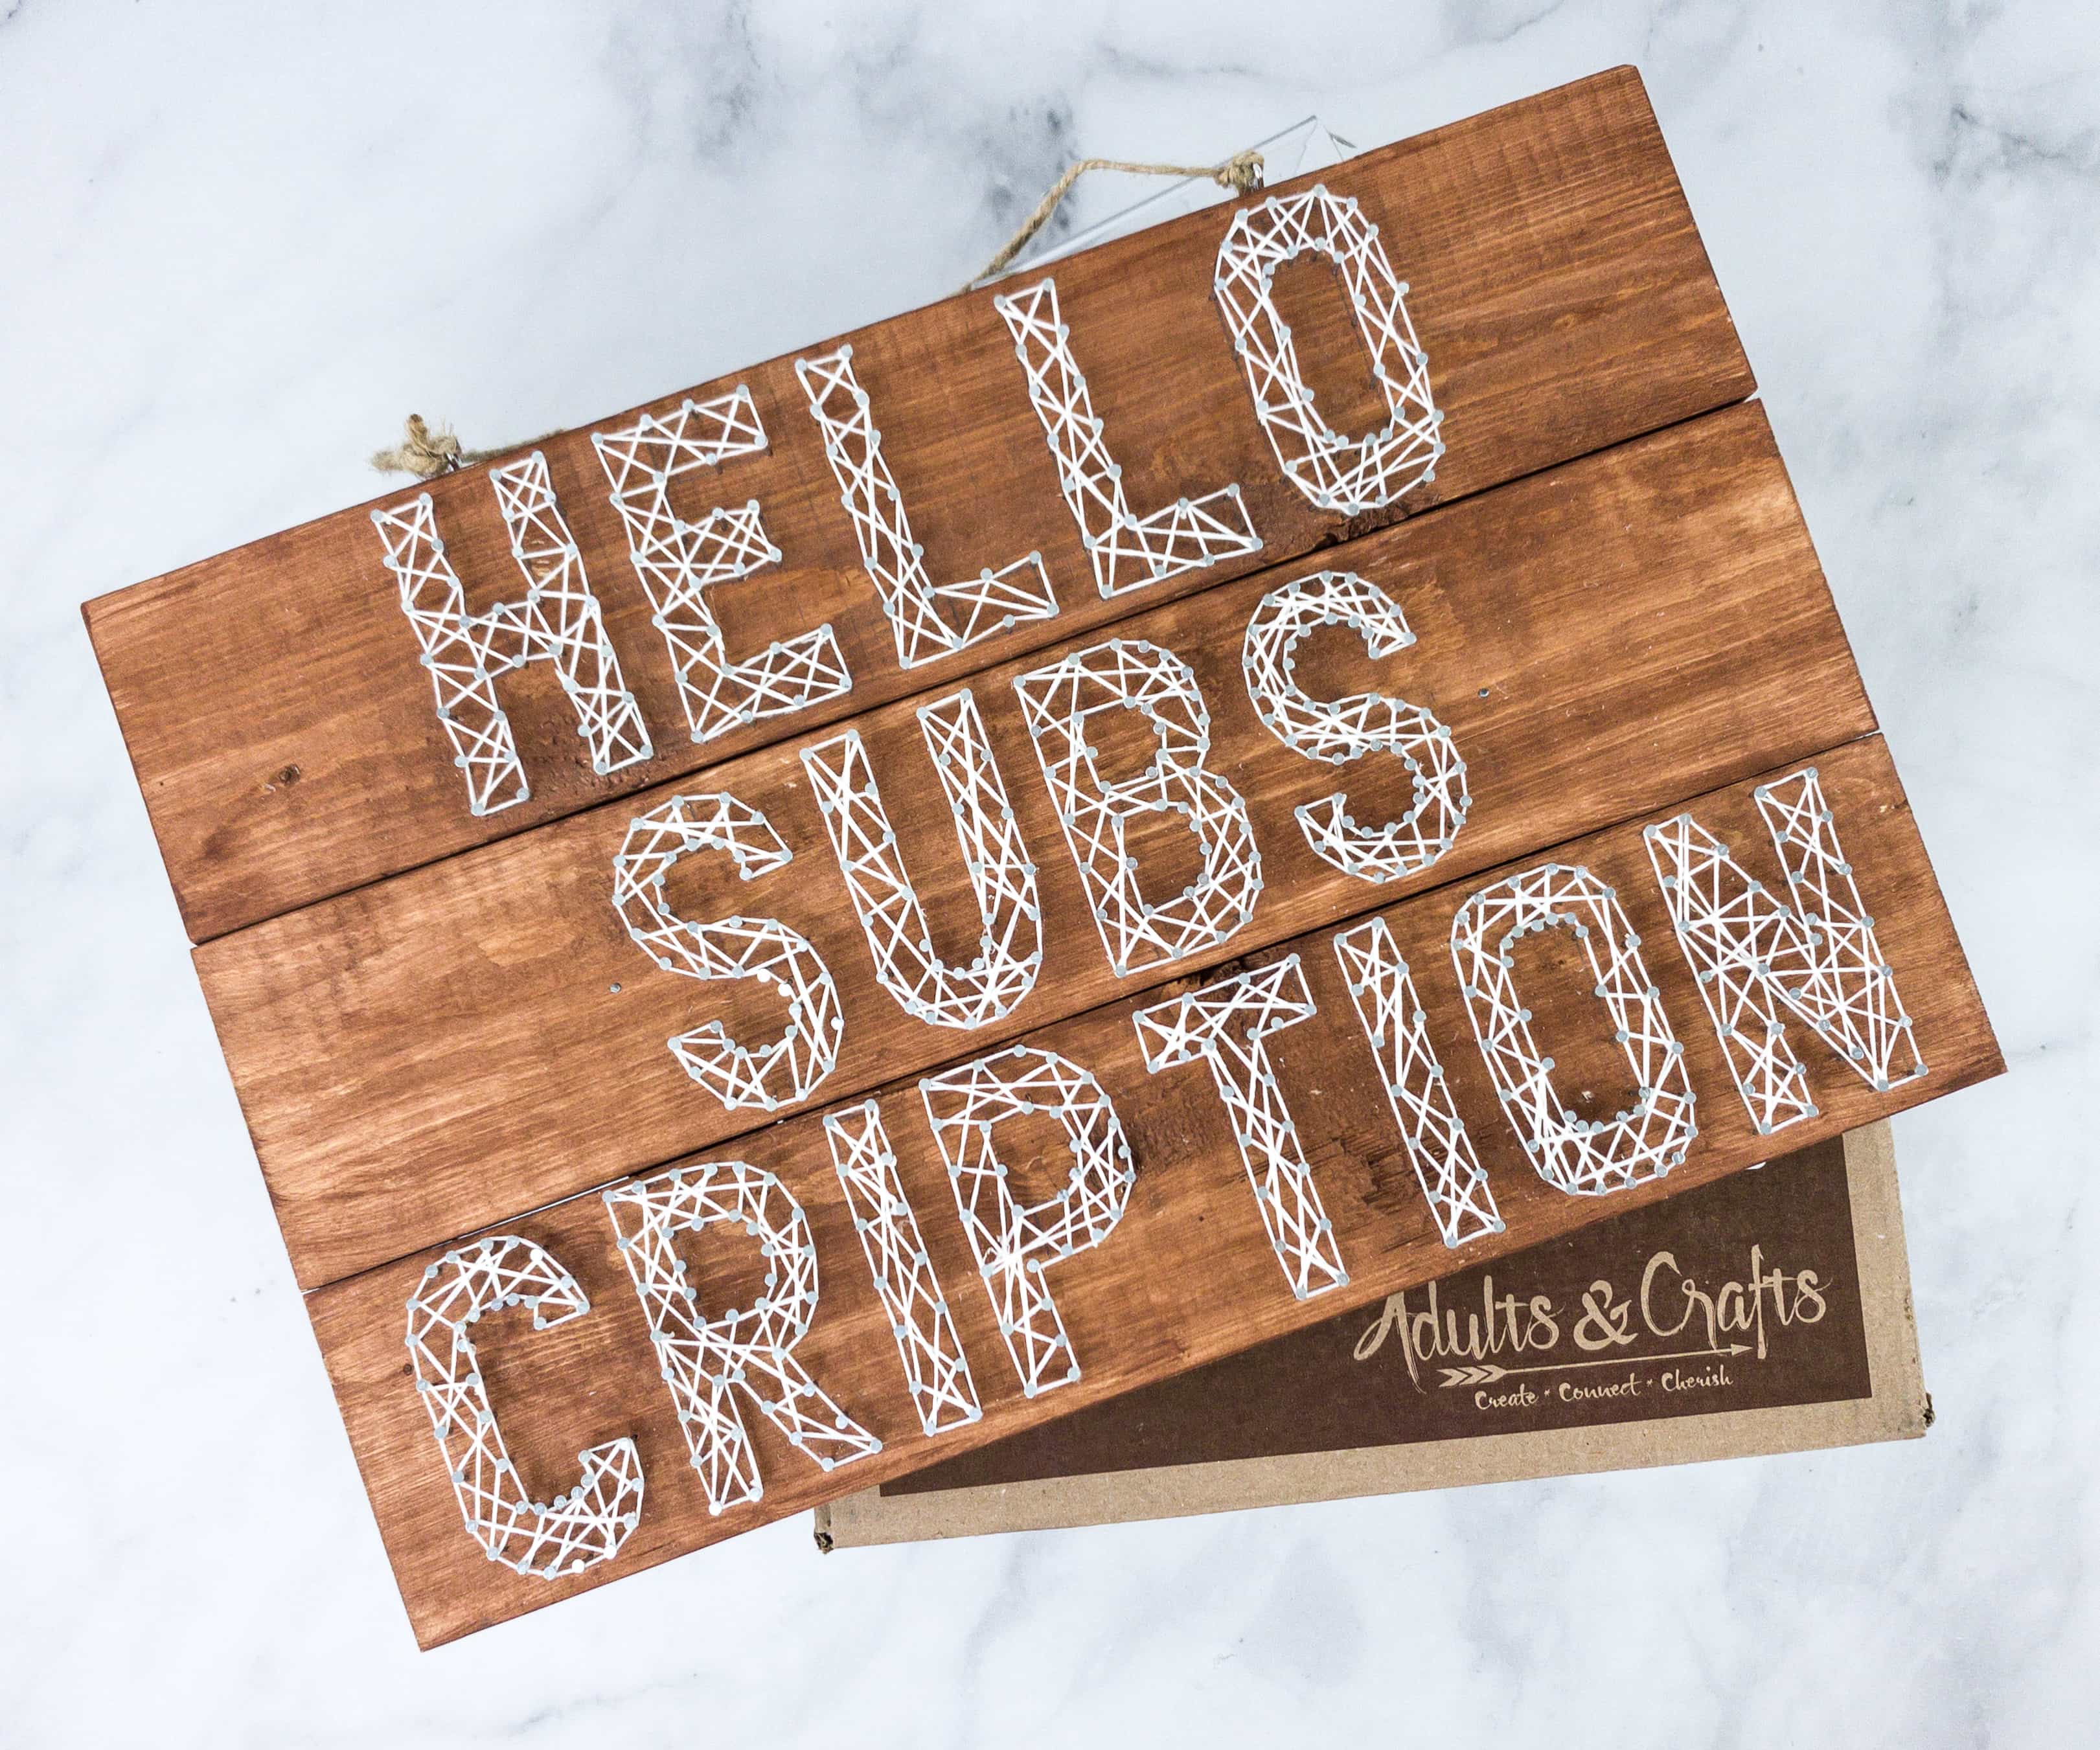 HELLO
SUBS
CRIPTION
Adults & Crafts
Create • Connect • Cherish